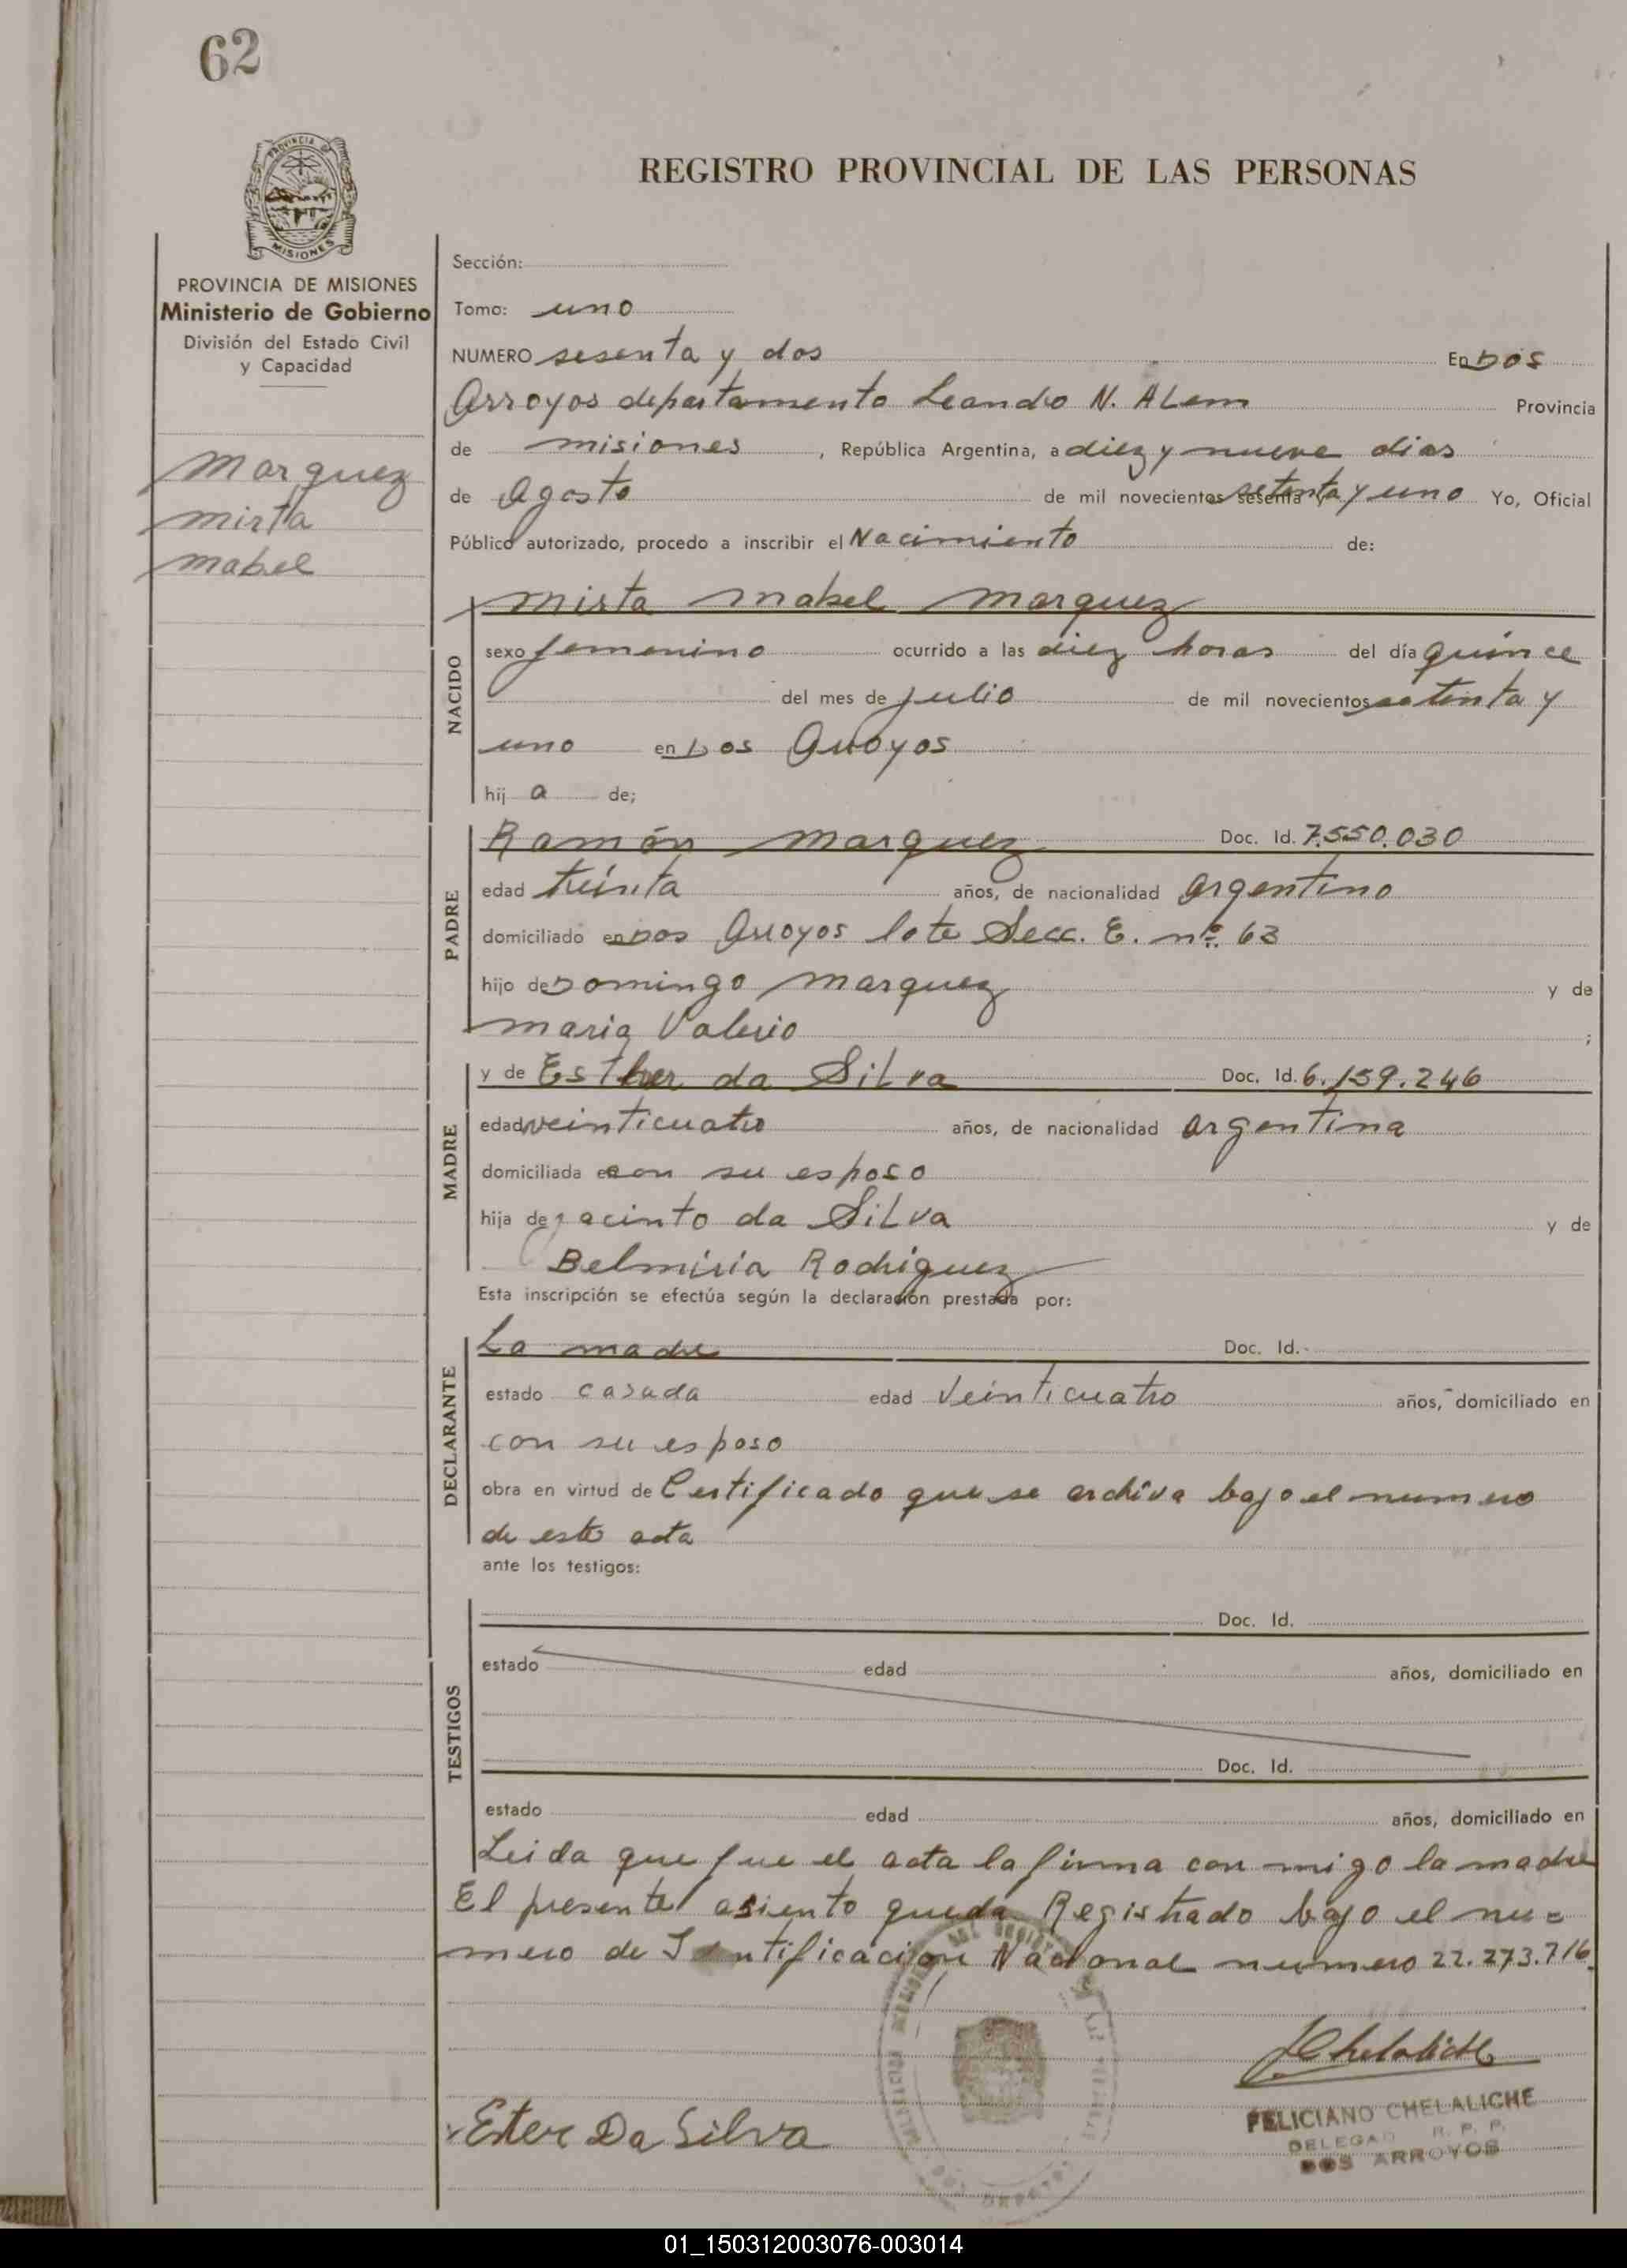 62
PROVINCIA DE
MISIONES
REGISTRO PROVINCIAL DE LAS PERSONAS
PROVINCIA DE MISIONES
Ministerio de Gobierno
División del Estado Civil
y Capacidad
Marquez
Mirta
Mabel
Sección:
Tomo: uno
NUMERO sesenta y dos En Dos
Arroyos departamento Leandro N. ALem Provincia
de misiones, República Argentina, a diez y nueve dias
de Agosto de mil novecientos sesenta setenta y uno Yo, Oficial
Público autorizado, procedo a inscribir el Nacimiento de:
Mirta Mabel Marquez
NACIDO
sexo femenino ocurrido a las diez horas del día quince
del mes de julio de mil novecientos setenta y
uno en Dos Arroyos
hij a de;
PADRE
Ramón Marquez Doc. Id. 7.550.030
edad treinta años, de nacionalidad argentino
domiciliado en Dos Arroyos lote Secc. E. nº 63
hijo de Domingo Marquez y de
Maria Valerio ;
MADRE
y de Esther da Silva Doc. Id. 6.159.246
edad veinticuatro años, de nacionalidad argentina
domiciliada en con su esposo
hija de Jacinto da Silva y de
Belmiria Rodriguez
Esta inscripción se efectúa según la declaración prestada por:
DECLARANTE
La madre Doc. Id.
estado casada edad Veinticuatro años, domiciliado en
con su esposo
obra en virtud de Certificado que se archiva bajo el numero
de este acta
ante los testigos:
TESTIGOS
Doc. Id.
estado edad años, domiciliado en
Doc. Id.
estado edad años, domiciliado en
Leida que fue el acta la firma con migo la madre
El presente asiento queda Registrado bajo el nu=
mero de Nacional numero 22.273.716.
Ester Da Silva
FELICIANO CHELALICHE
R. P. P.
DOS ARROYOS
01_150312003076-003014